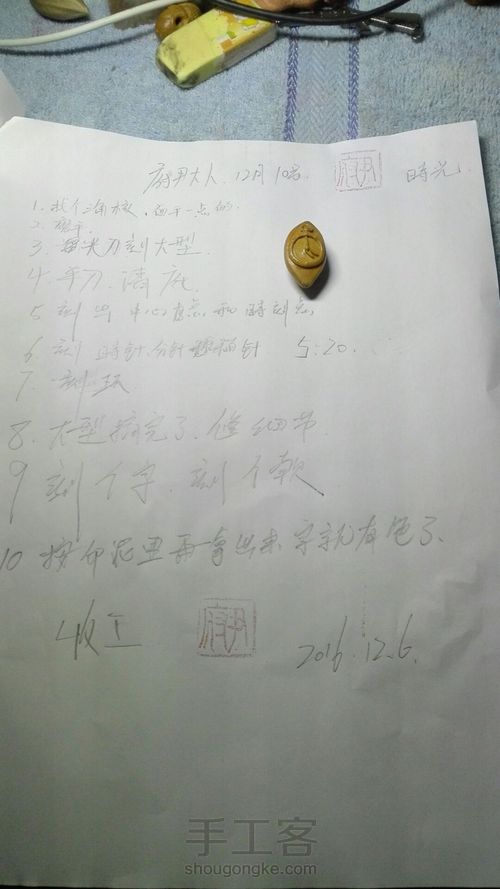 府尹大人 12月10号 府尹 時光
1. 找个三角核,
2. 磨平
3 用尖刀刻大型
4. 平刀 清底
5 刻出中心圆点和時刻点
6 刻時針,分針 秒针 5:20
7. 刻环
8. 大型搞完了. 修细节
9 刻个字. 刻个款
10 按印泥里再拿出来 字就有色了.
收工 府尹 2016.12.6.
手工客
shougongke.com